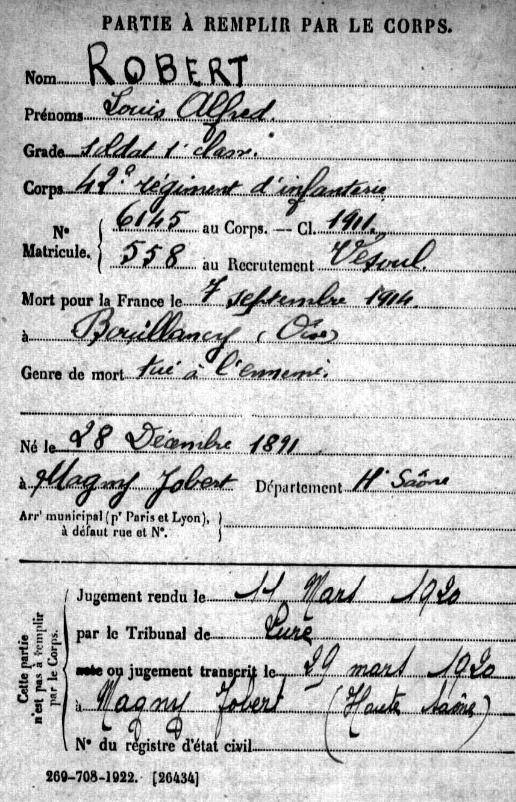 PARTIE À REMPLIR PAR LE CORPS.
Nom ROBERT
Prénoms Louis Alfred.
Grade soldat 1e classe
Corps 42e régiment d'infanterie
N° Matricule. { 6145 au Corps. — Cl. 1911.
558 au Recrutement Vesoul.
Mort pour la France le 7 septembre 1914
à Bouillancy (Oise)
Genre de mort tué à l'ennemi.
Né le 28 Décembre 1891
à Magny Jobert Département Hte Saône
Arrt municipal (pr Paris et Lyon), à défaut rue et N°. }
Cette partie n'est pas à remplir par le Corps.
Jugement rendu le 11 Mars 1920
par le Tribunal de Lure
acte ou jugement transcrit le 29 mars 1920
à Magny Jobert (Haute Saône)
N° du registre d'état civil
269-708-1922. [26434]